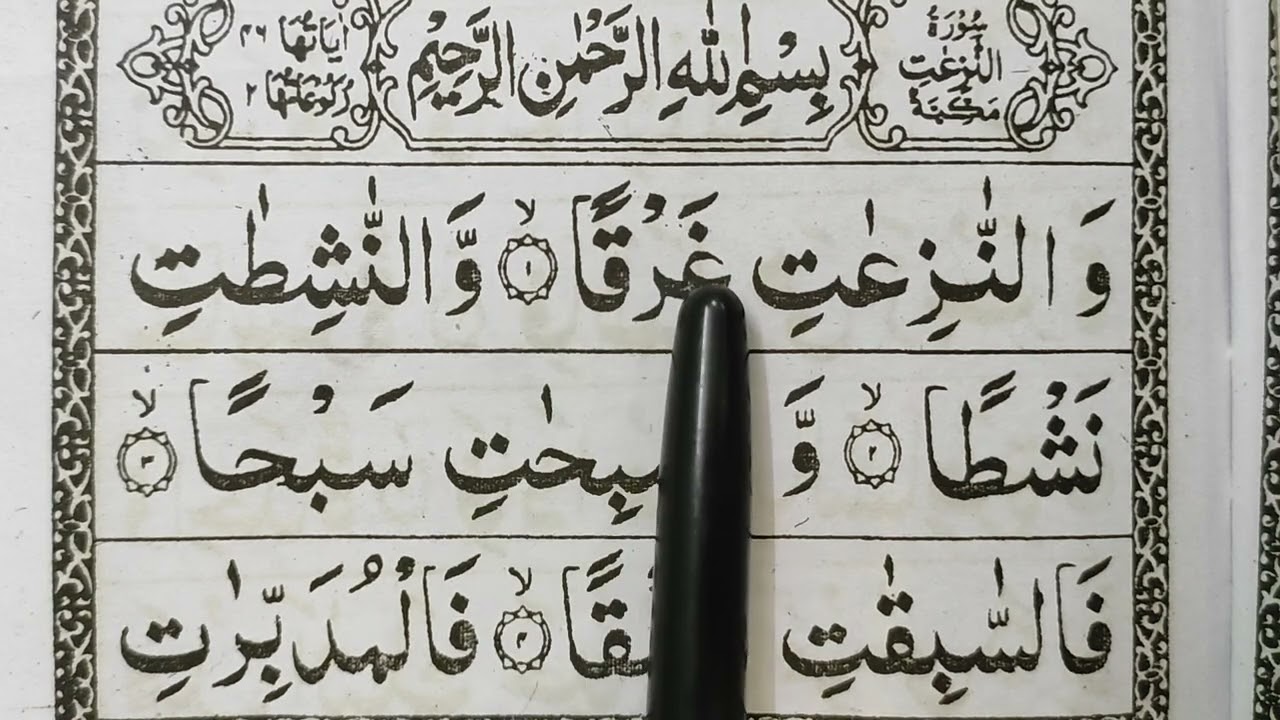 سُوْرَةُ النّٰزِعٰتِ مَكِّيَّةٌ
بِسْمِ اللّٰهِ الرَّحْمٰنِ الرَّحِيْمِ
اٰيَاتُهَا ٤٦ رُكُوْعَاتُهَا ٢
وَ النّٰزِعٰتِ غَرْقًا ۙ‏﴿۱﴾ وَّ النّٰشِطٰتِ
نَشْطًا ۙ‏﴿۲﴾ وَّ سَبْحًا ۙ‏﴿۳﴾
فَالسّٰبِقٰتِ ۙ‏﴿۴﴾ فَالْمُدَبِّرٰتِ